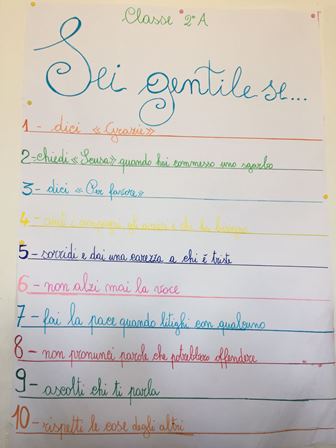 Classe 2ª A
Sei gentile se...
1 - dici «Grazie»
2 - chiedi «Scusa» quando hai commesso uno sgarbo
3 - dici «Per favore»
4 - aiuti i compagni
5 - sorridi e dai una carezza a chi è triste
6 - non alzi mai la voce
7 - fai la pace quando litighi con qualcuno
8 - non pronunci parole che potrebbero offendere
9 - ascolti chi ti parla
10 - rispetti le cose degli altri